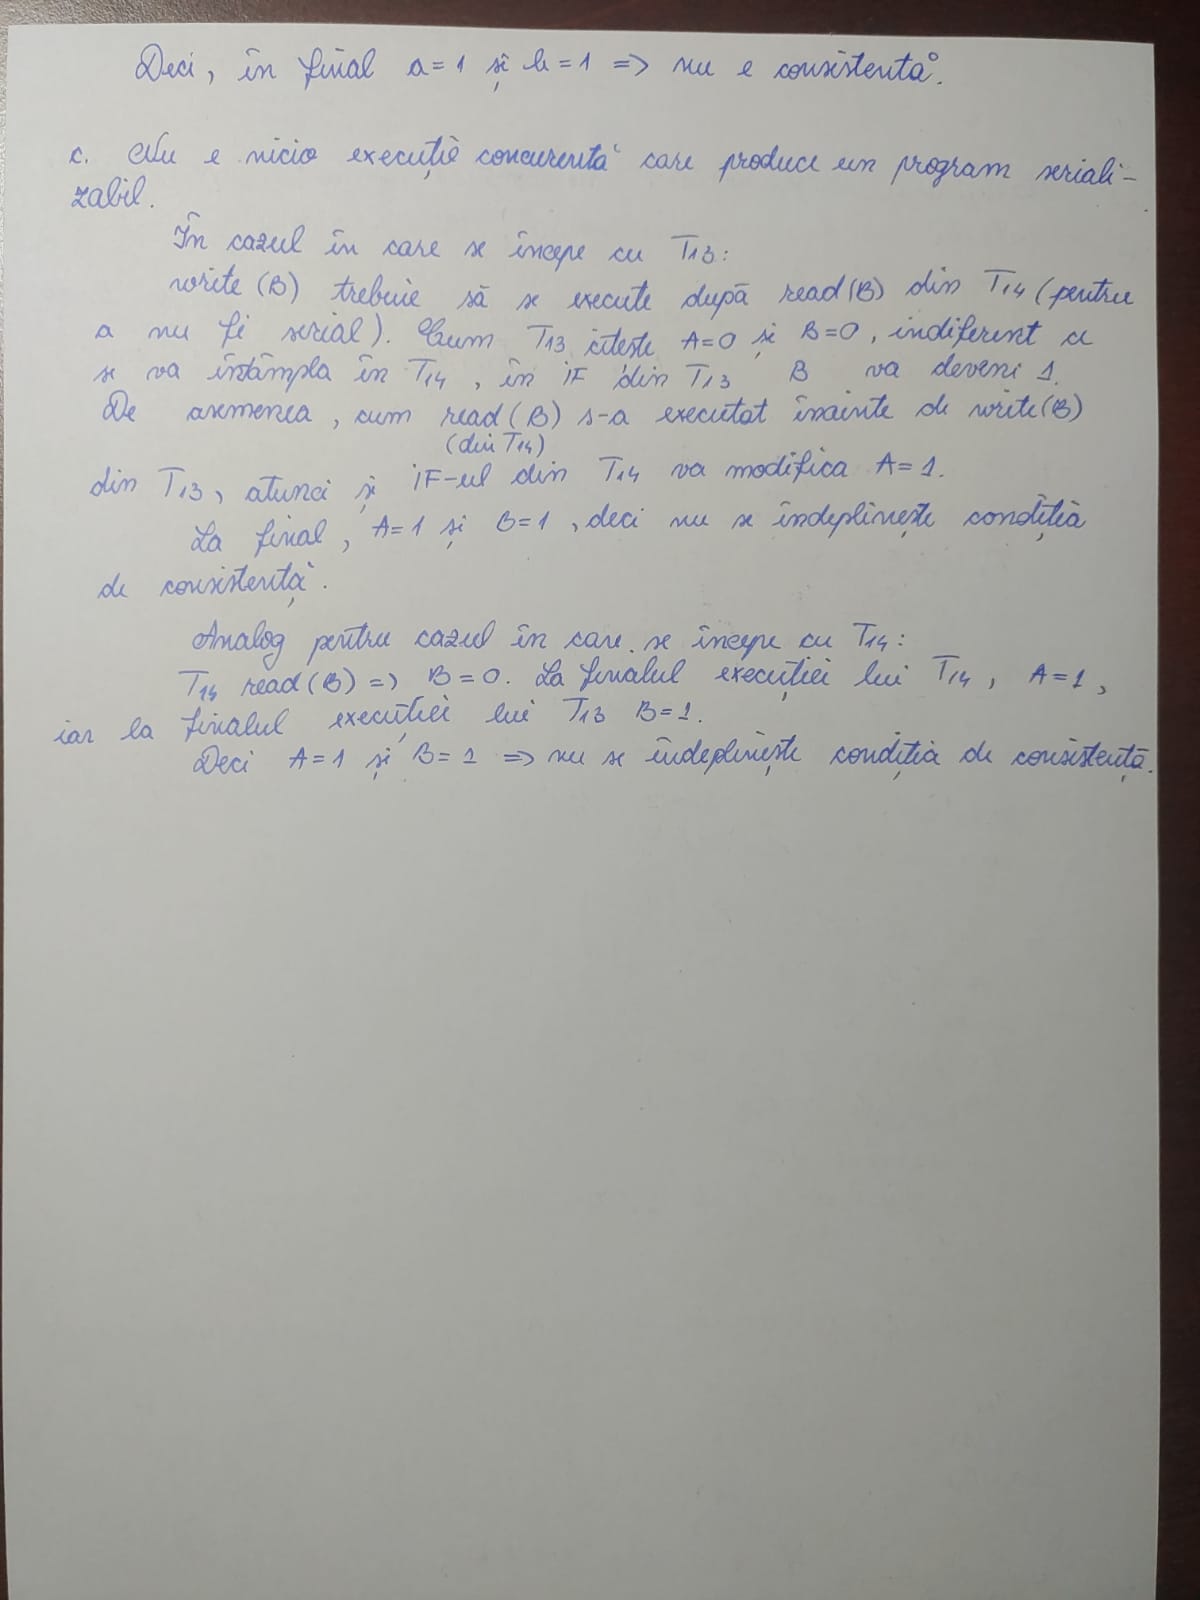 Deci, în final a=1 și b=1 => nu e consistentă.
c. Nu e nicio execuție concurentă care produce un program seriali-
zabil.
În cazul în care se începe cu T13:
write(B) trebuie să se execute după read(B) din T14 (pentru
a nu fi serial). Cum T13 citește A=0 și B=0, indiferent ce
se va întâmpla în T14, în IF din T13 B va deveni 1.
De asemenea, cum read(B) s-a executat înainte de write(B)
(din T14)
din T13, atunci și IF-ul din T14 va modifica A=1.
La final, A=1 și B=1, deci nu se îndeplinește condiția
de consistență.
Analog pentru cazul în care se începe cu T14:
T14 read(B) => B=0. La finalul execuției lui T14, A=1,
iar la finalul execuției lui T13 B=1.
Deci A=1 și B=1 => nu se îndeplinește condiția de consistență.